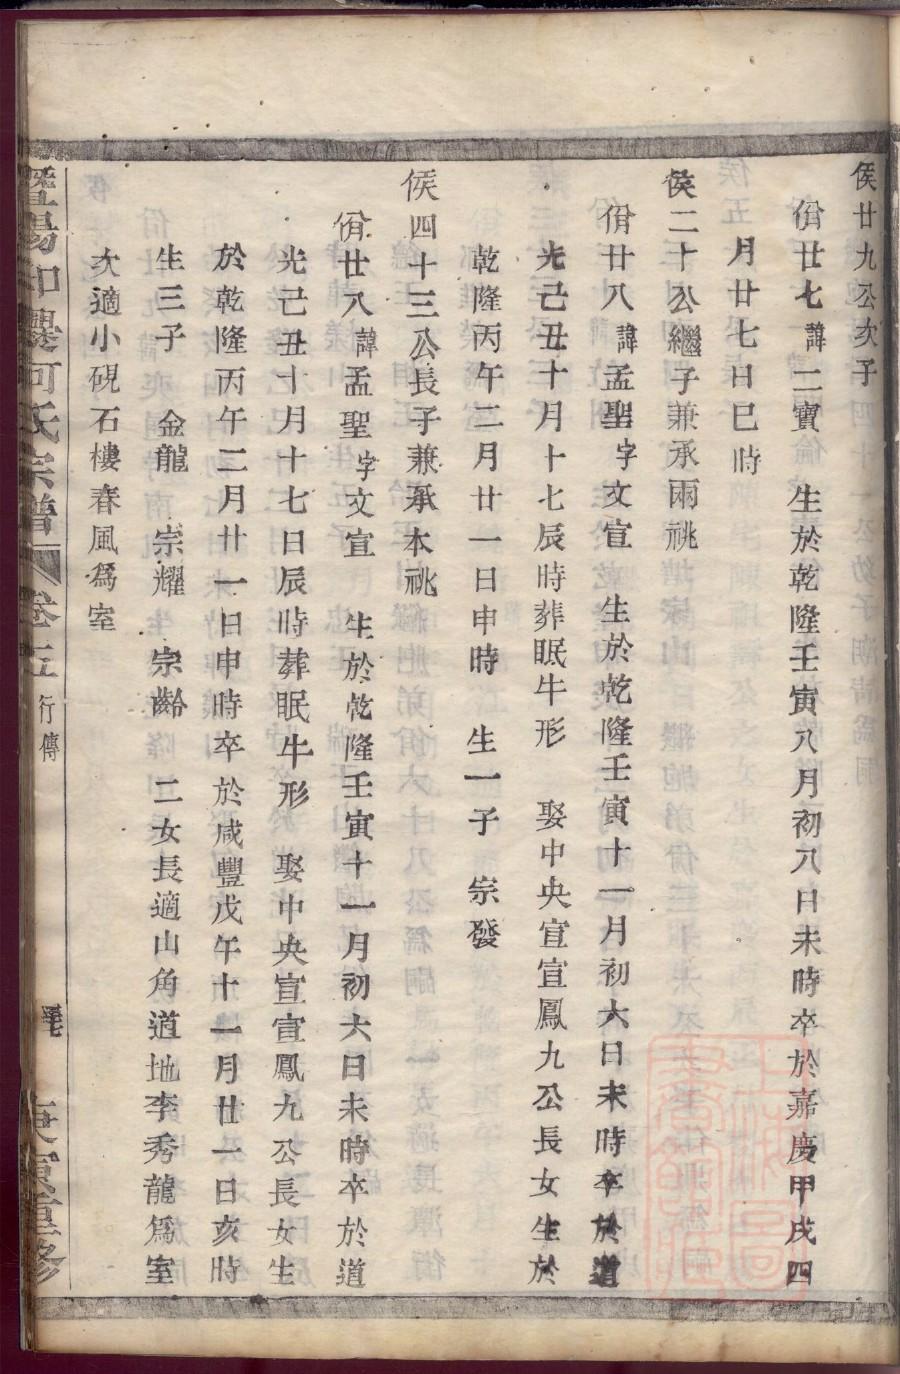 侯廿九公次子
佾廿七諱二寶 生於乾隆壬寅八月初八日未時卒於嘉慶甲戌四
月廿七日巳時
侯二十公繼子兼承兩祧
佾廿八諱孟聖字文宣 生於乾隆壬寅十一月初六日未時卒於道
光己丑十月十七辰時葬眠牛形 娶中央宣宣鳳九公長女生於
乾隆丙午二月廿一日申時 生一子 宗發
侯四十三公長子兼承本祧
佾廿八諱孟聖字文宣 生於乾隆壬寅十一月初六日未時卒於道
光己丑十月十七日辰時葬眠牛形 娶中央宣宣鳳九公長女生
於乾隆丙午二月廿一日申時卒於咸豐戊午十一月廿一日亥時
生三子 金龍 宗耀 宗齡 二女長適山角道地李秀龍為室
次適小硯石樓春風為室
暨陽 何氏宗譜 卷 行傳 寅重修